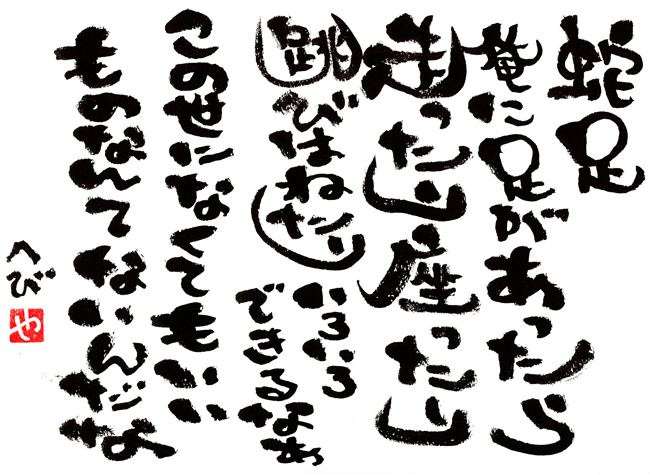 蛇足
俺に足があったら
走ったり座ったり
跳びはねたり
いろいろ
できるなぁ
この世になくてもいい
ものなんてないんだな
へび
や